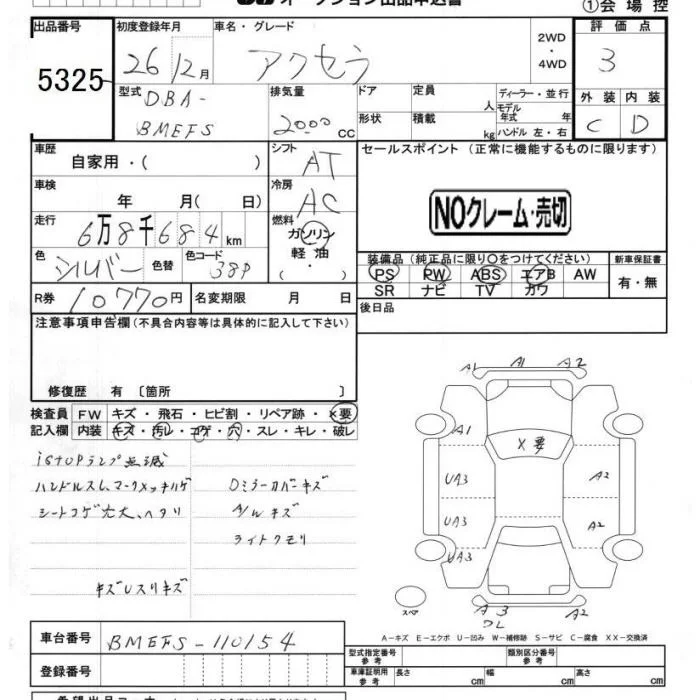 オークション出品申込書
①会場控
出品番号 初度登録年月 車名・グレード 評価点
5325 26 12月 アクセラ 2WD ・ 4WD 3
型式 排気量 ドア 定員 人 ディーラー・並行 外装 内装
DBA- BMEFS 2000 CC モデル年式 年 C D
形状 積載 kg ハンドル 左・右
車歴 自家用・( ) シフト AT セールスポイント (正常に機能するものに限ります)
車検 年 月( 日) 冷房 AC
NOクレーム・売切
走行 6万8千684km 燃料 ガソリン 軽油 ・ ( )
色 シルバー 色替 色コード 38P
装備品 (純正品に限り○をつけてください) 新車保証書
PS PW ABS エアB AW 有・無
SR ナビ TV カワ
R券 10770円 名変期限 月 日
後日品
注意事項申告欄 (不具合内容等は具体的に記入して下さい)
修復歴 有 〔箇所 〕
検査員 FW キズ・飛石・ヒビ割・リペア跡・×要
記入欄 内装 キズ・汚レ・コゲ・穴・スレ・キレ・破レ
iSTOPランプ点滅
ハンドルスレ、マークメッキハゲ Dミラーカバーキズ
シートコゲ穴大、ヘタリ A/Wキズ
ライトクモリ
キズUスリキズ
A1 A1 A2
A1 ×要
UA3 A2
UA3 A2
UA3
スペア A3 A2
ワレ
A-キズ E-エクボ U-凹み W-補修跡 S-サビ C-腐食 XX-交換済
車台番号 BMEFS-110154
型式指定番号 参考 類別区分番号 参考
登録番号 車庫証明用 参考 長さ cm 幅 cm 高さ cm